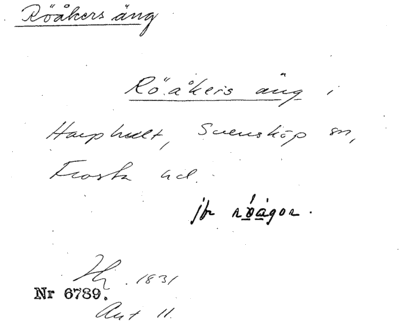 Röåkers äng
Röåkers äng i
Harphult, Svensköp sn,
Frosta hd.
jfr röågor.
1831
Nr 6789.
Ant 11.